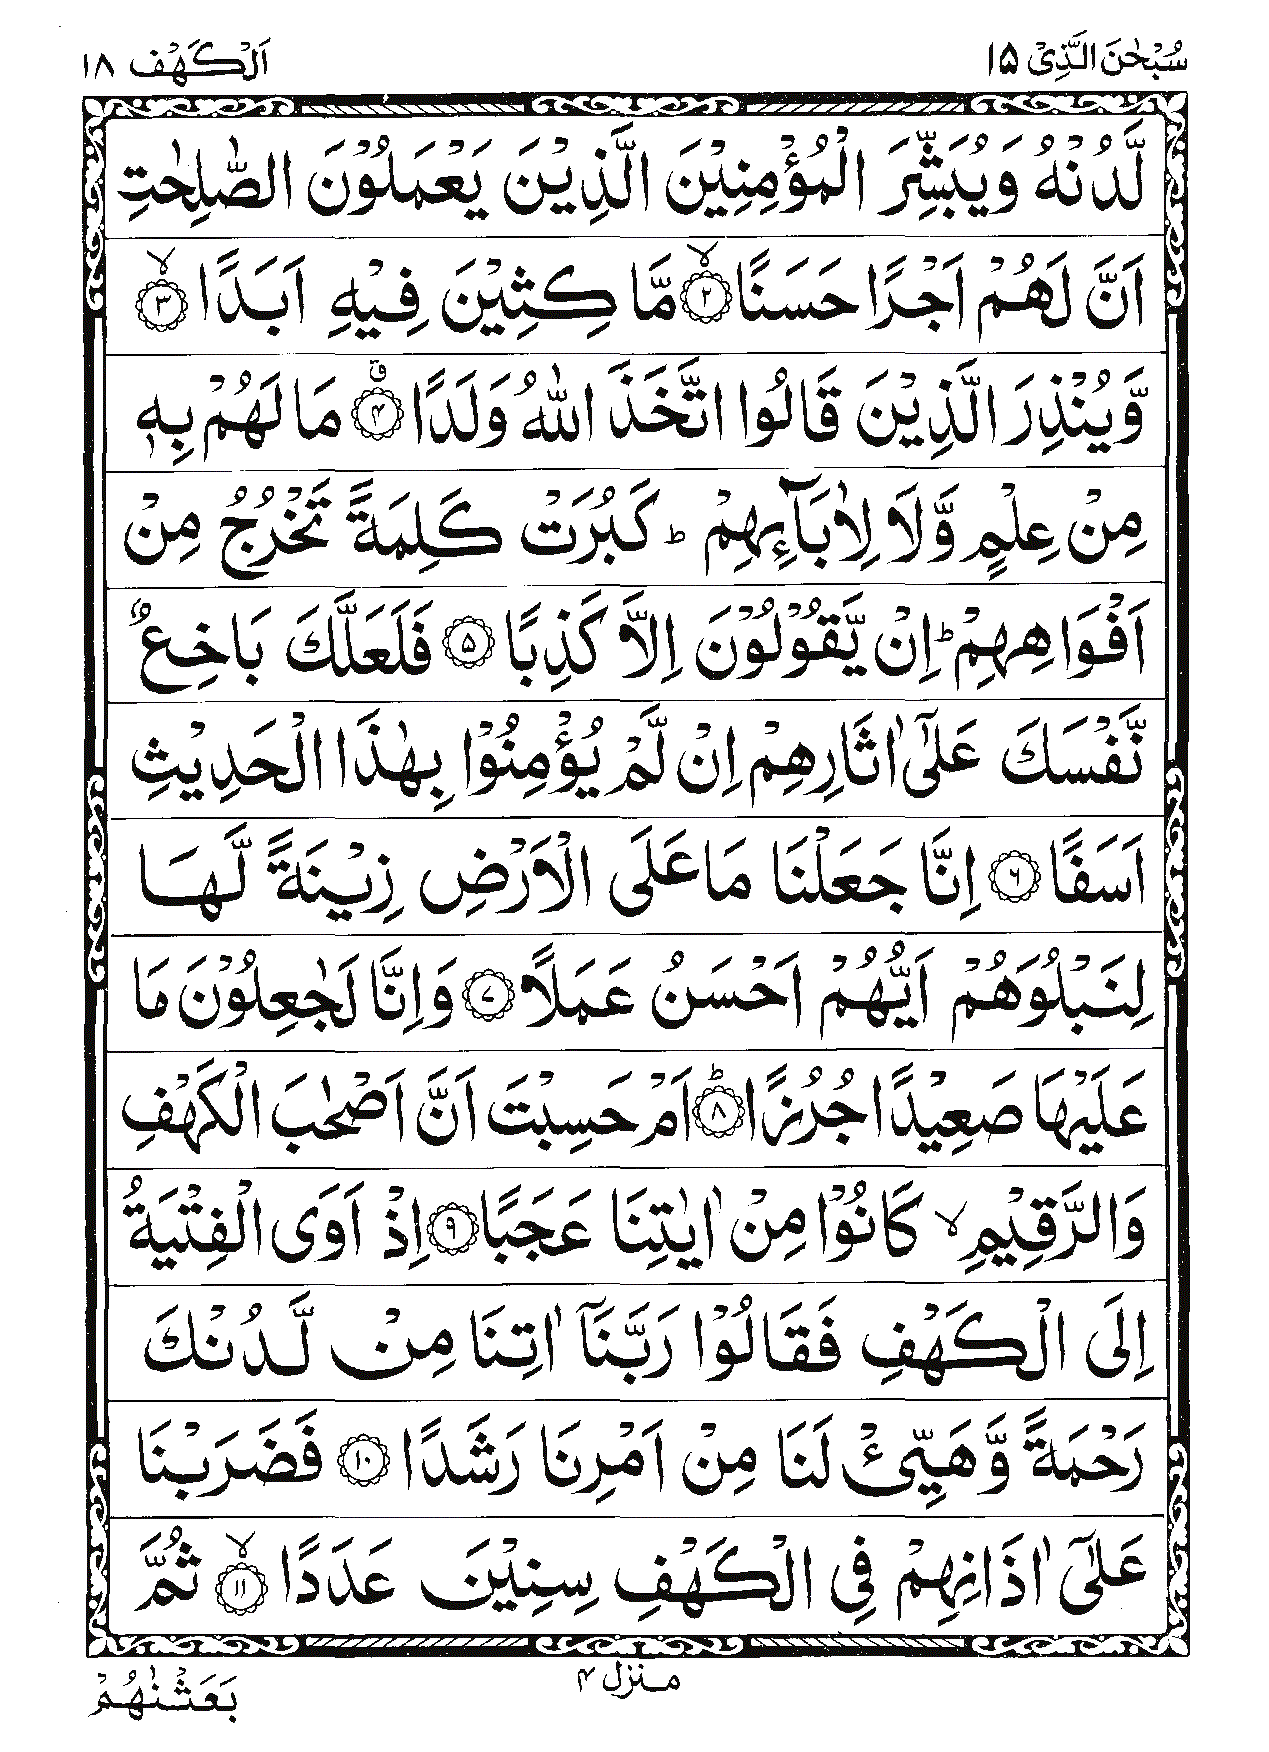 سُبْحٰنَ الَّذِیْ ۱۵
اَلْكَهْف ۱۸
لَّدُنْهُ وَیُبَشِّرَ الْمُؤْمِنِیْنَ الَّذِیْنَ یَعْمَلُوْنَ الصّٰلِحٰتِ
اَنَّ لَهُمْ اَجْرًا حَسَنًا ۙ﴿۲﴾ مَّا كِثِیْنَ فِیْهِ اَبَدًا ۙ﴿۳﴾
وَّیُنْذِرَ الَّذِیْنَ قَالُوا اتَّخَذَ اللّٰهُ وَلَدًا ۗ﴿۴﴾ مَا لَهُمْ بِهٖ
مِنْ عِلْمٍ وَّلَا لِاٰبَآىِٕهِمْ ؕ كَبُرَتْ كَلِمَةً تَخْرُجُ مِنْ
اَفْوَاهِهِمْ ؕ اِنْ یَّقُوْلُوْنَ اِلَّا كَذِبًا ﴿۵﴾ فَلَعَلَّكَ بَاخِعٌ
نَّفْسَكَ عَلٰۤی اٰثَارِهِمْ اِنْ لَّمْ یُؤْمِنُوْا بِهٰذَا الْحَدِیْثِ
اَسَفًا ﴿۶﴾ اِنَّا جَعَلْنَا مَا عَلَی الْاَرْضِ زِیْنَةً لَّهَا
لِنَبْلُوَهُمْ اَیُّهُمْ اَحْسَنُ عَمَلًا ﴿۷﴾ وَاِنَّا لَجٰعِلُوْنَ مَا
عَلَیْهَا صَعِیْدًا جُرُزًا ؕ﴿۸﴾ اَمْ حَسِبْتَ اَنَّ اَصْحٰبَ الْكَهْفِ
وَالرَّقِیْمِ ۙ كَانُوْا مِنْ اٰیٰتِنَا عَجَبًا ﴿۹﴾ اِذْ اَوَی الْفِتْیَةُ
اِلَی الْكَهْفِ فَقَالُوْا رَبَّنَاۤ اٰتِنَا مِنْ لَّدُنْكَ
رَحْمَةً وَّهَیِّئْ لَنَا مِنْ اَمْرِنَا رَشَدًا ﴿۱۰﴾ فَضَرَبْنَا
عَلٰۤی اٰذَانِهِمْ فِی الْكَهْفِ سِنِیْنَ عَدَدًا ۙ﴿۱۱﴾ ثُمَّ
منزل ۴
بَعَثْنٰهُمْ